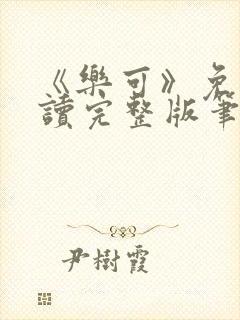 《樂可》免
讀完整版筆
尹樹霞